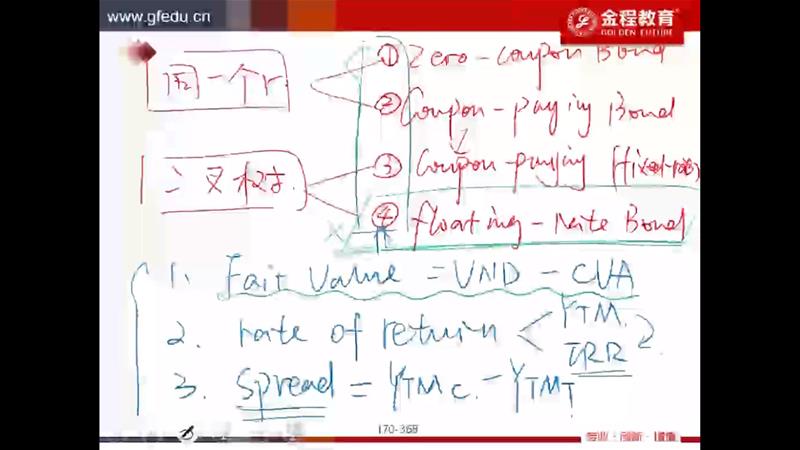 www.gfedu.cn
金程教育
GOLDEN FUTURE
同一个r
① Zero-coupon Bond
② Coupon-paying Bond
二叉树
③ Coupon-paying (fixed-rate)
④ floating-rate Bond
1. Fair Value = VND - CVA
2. rate of return < YTM.
IRR
3. Spread = YTMc - YTMT
170-368
专业·创新·增值